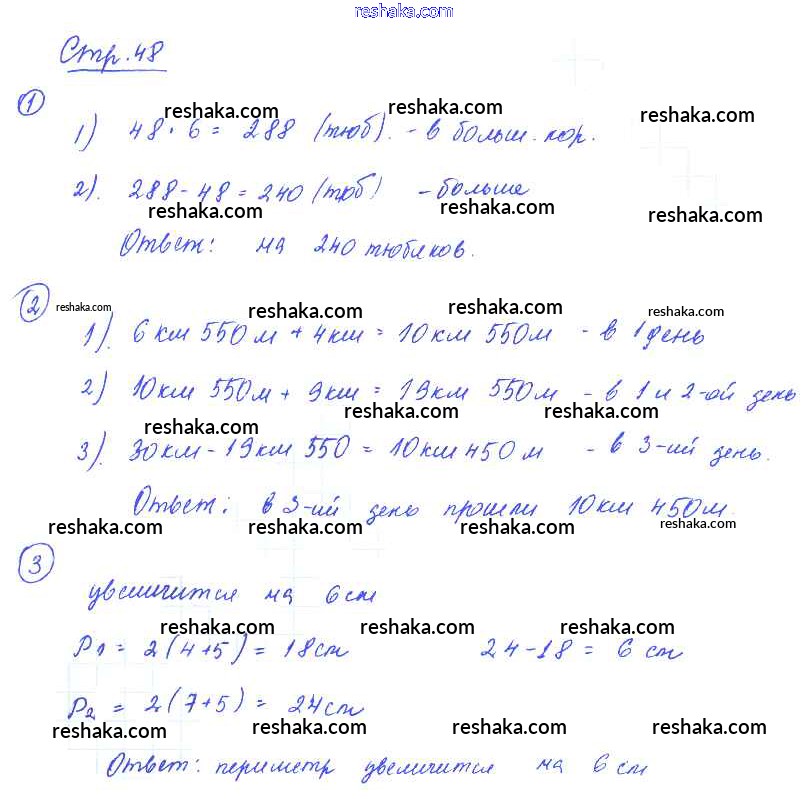 reshaka.com
Стр. 48
reshaka.com reshaka.com reshaka.com
① 1) 48 · 6 = 288 (тюб). - в больш. кор.
2). 288 - 48 = 240 (тюб) - больше
reshaka.com reshaka.com reshaka.com
Ответ: на 240 тюбиков.
② reshaka.com reshaka.com reshaka.com reshaka.com
1). 6 км 550 м + 4 км = 10 км 550 м - в 1 день
2) 10 км 550 м + 9 км = 19 км 550 м - в 1 и 2-ой день
reshaka.com reshaka.com reshaka.com
3). 30 км - 19 км 550 = 10 км 450 м - в 3-ий день.
Ответ: в 3-ий день прошли 10 км 450 м.
reshaka.com reshaka.com reshaka.com reshaka.com
③ увеличится на 6 см
reshaka.com reshaka.com reshaka.com
P1 = 2(4+5) = 18 см 24 - 18 = 6 см
P2 = 2(7+5) = 24 см
reshaka.com reshaka.com reshaka.com reshaka.com
Ответ: периметр увеличится на 6 см